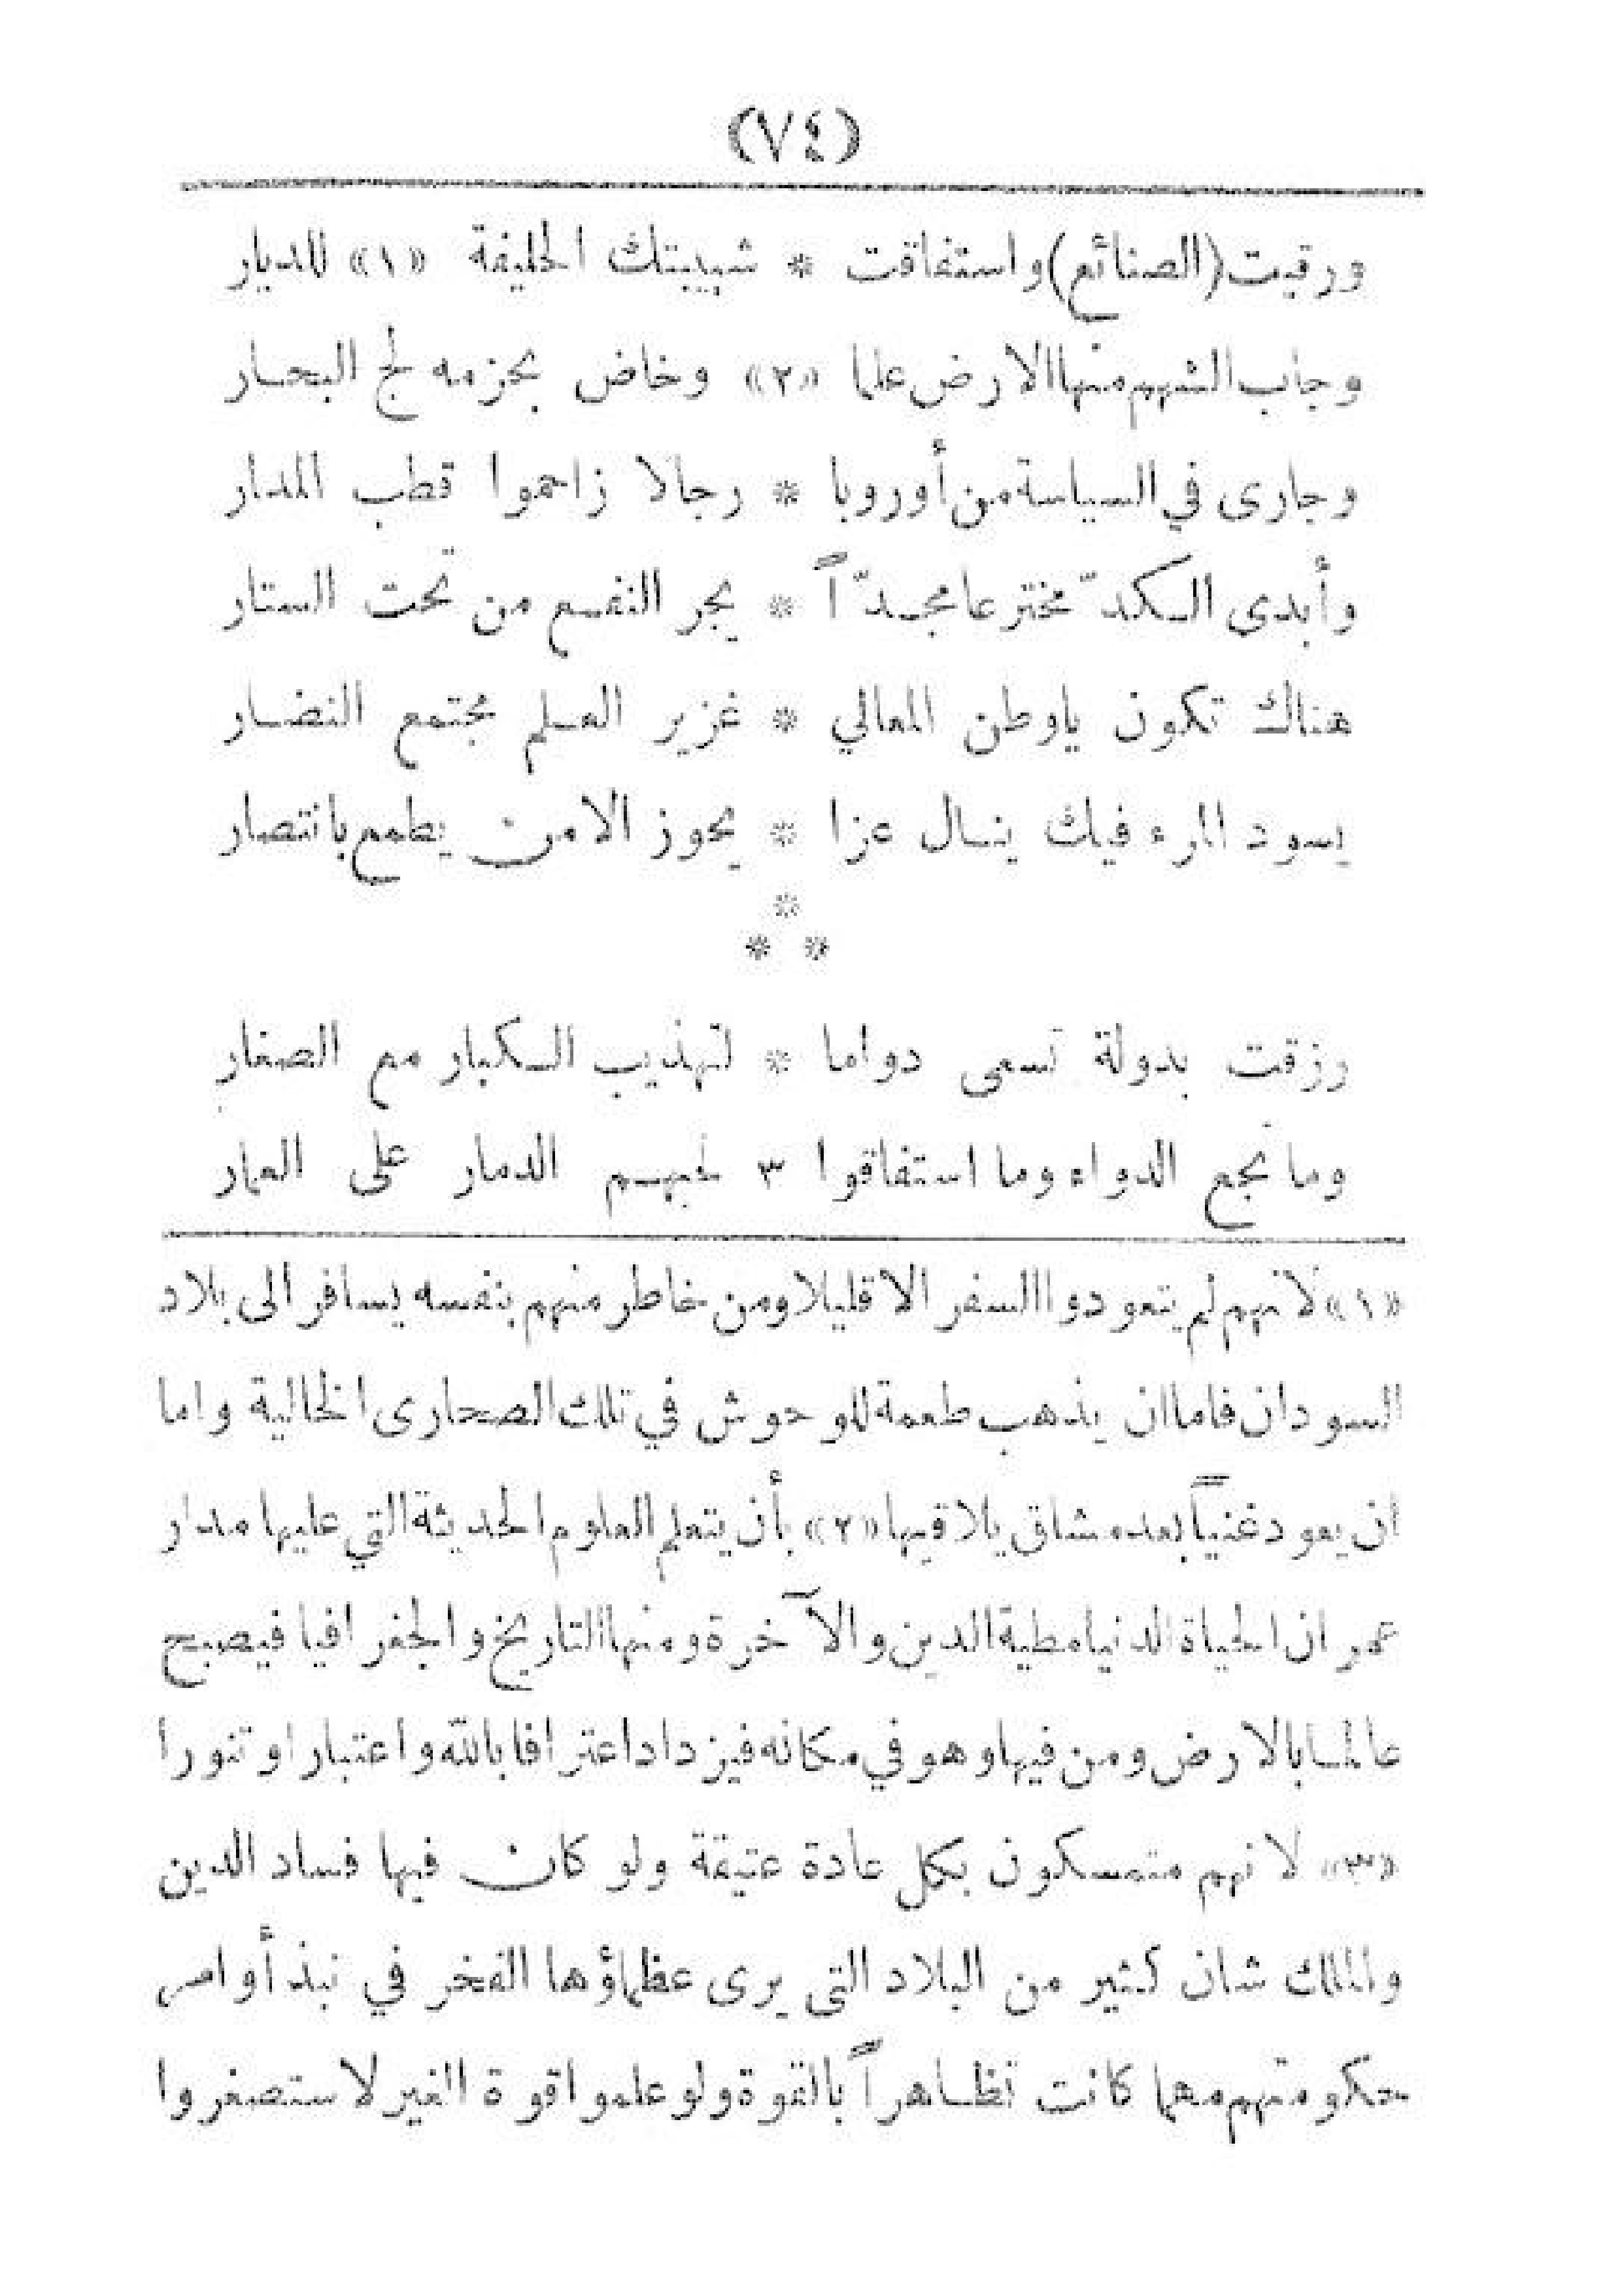 (٧٤)
ورقيت (الصنائع) واستفاقت * شبيبتك الحليفة «١» للديار
وجاب الشهم منها الارض علما «٢» وخاض بحزمه لج البحار
وجارى في السياسة من أوروبا * رجالا زاحموا قطب المدار
وأبدى الكدّ مخترعا مجدّاً * يجر النفع من تحت الستار
هناك تكون ياوطن المعالي * غزير العلم مجتمع النضار
يسود المرء فيك ينال عزا * يحوز الامن يطمع بانتصار
*
* *
رزقت بدولة تسعى دواما * لتهذيب الكبار مع الصغار
وما نجع الدواء وما استفاقوا ٣ لحبهم الدمار على العمار
«١» لانهم لم يتعودوا السفر الا قليلا ومن خاطر منهم بنفسه يسافر الى بلاد
السودان فاما ان يذهب طعمة للوحوش في تلك الصحارى الخالية واما
ان يعود غنياً بعد مشاق يلاقيها «٢» بأن يتعلم العلوم الحديثة التي عليها مدار
عمران الحياة الدنيا مطية الدين والآخرة ومنها التاريخ والجغرافيا فيصبح
عالما بالارض ومن فيها وهو في مكانه فيزداد اعترافا بالله واعتبارا وتنورا
«٣» لانهم متمسكون بكل عادة عتيقة ولو كان فيها فساد الدين
والملك شان كثير من البلاد التي يرى عظماؤها الفخر في نبذ أوامر
حكومتهم مهما كانت تظاهراً بالقوة ولو علموا قوة الغير لاستصغروا